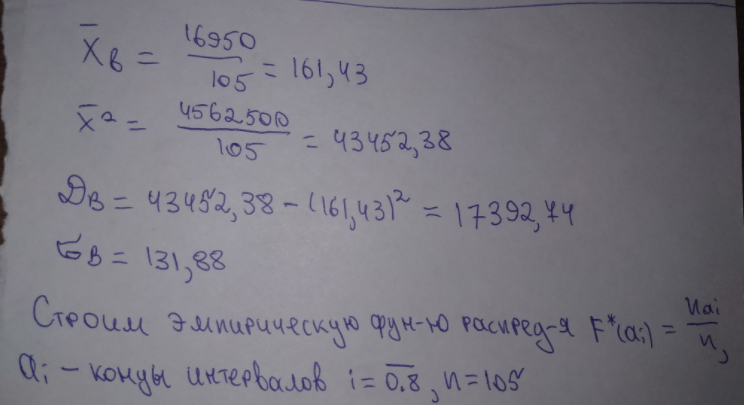 X̄в = 16950/105 = 161,43
X̄² = 4562500/105 = 43452,38
Dв = 43452,38 – (161,43)² = 17392,74
σв = 131,88
Строим эмпирическую фун-ю распред-я F*(ai) = nai/n,
ai – концы интервалов i = 0.8, n = 105